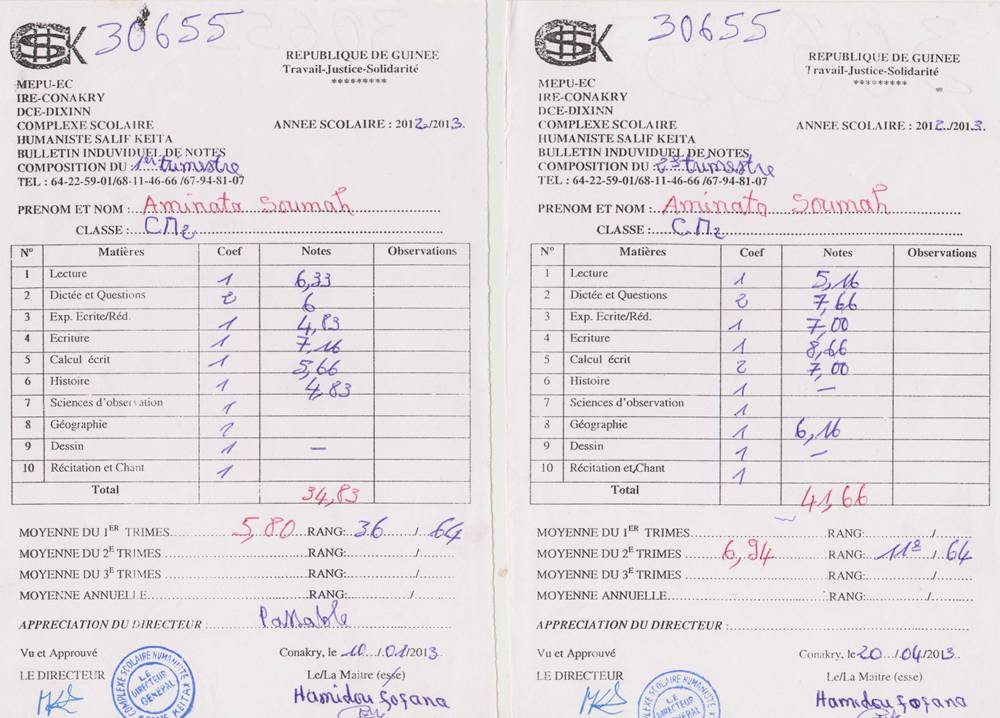 30655
REPUBLIQUE DE GUINEE
Travail-Justice-Solidarité
*********
MEPU-EC
IRE-CONAKRY
DCE-DIXINN
COMPLEXE SCOLAIRE
ANNEE SCOLAIRE : 2012../2013.
HUMANISTE SALIF KEITA
BULLETIN INDUVIDUEL DE NOTES
COMPOSITION DU : 1er trimestre
TEL : 64-22-59-01/68-11-46-66 /67-94-81-07
PRENOM ET NOM : Aminata Soumah
CLASSE : CM2
N° Matières Coef Notes Observations
1 Lecture 1 6,33
2 Dictée et Questions 2 6
3 Exp. Ecrite/Réd. 1 4,83
4 Ecriture 1 7,16
5 Calcul écrit 1 5,66
6 Histoire 1 4,83
7 Sciences d'observation 1
8 Géographie
9 Dessin 1 —
10 Récitation et Chant 1
Total 34,83
MOYENNE DU 1ER TRIMES 5,80 RANG: 36 / 64
MOYENNE DU 2E TRIMES RANG: /
MOYENNE DU 3E TRIMES RANG: /
MOYENNE ANNUELLE RANG: /
APPRECIATION DU DIRECTEUR : Passable
Vu et Approuvé Conakry, le 10 /01/2013
LE DIRECTEUR Le/La Maitre (esse)
Hamidou Fofana
COMPLEXE SCOLAIRE HUMANISTE KEITA
LE DIRECTEUR GENERAL
30655
REPUBLIQUE DE GUINEE
Travail-Justice-Solidarité
*********
MEPU-EC
IRE-CONAKRY
DCE-DIXINN
COMPLEXE SCOLAIRE
ANNEE SCOLAIRE : 2012../2013.
HUMANISTE SALIF KEITA
BULLETIN INDUVIDUEL DE NOTES
COMPOSITION DU : 2e trimestre
TEL : 64-22-59-01/68-11-46-66 /67-94-81-07
PRENOM ET NOM : Aminata Soumah
CLASSE : CM2
N° Matières Coef Notes Observations
1 Lecture 1 5,16
2 Dictée et Questions 2 7,66
3 Exp. Ecrite/Réd. 1 7,00
4 Ecriture 1 8,66
5 Calcul écrit 2 7,00
6 Histoire 1 —
7 Sciences d'observation 1
8 Géographie 1 6,16
9 Dessin 1 —
10 Récitation et Chant 1
Total 41,66
MOYENNE DU 1ER TRIMES RANG: /
MOYENNE DU 2E TRIMES 6,94 RANG: 11e / 64
MOYENNE DU 3E TRIMES RANG: /
MOYENNE ANNUELLE RANG: /
APPRECIATION DU DIRECTEUR :
Vu et Approuvé Conakry, le 20 /04/2013
LE DIRECTEUR Le/La Maitre (esse)
Hamidou Fofana
SCOLAIRE HUMANISTE
LE DIRECTEUR